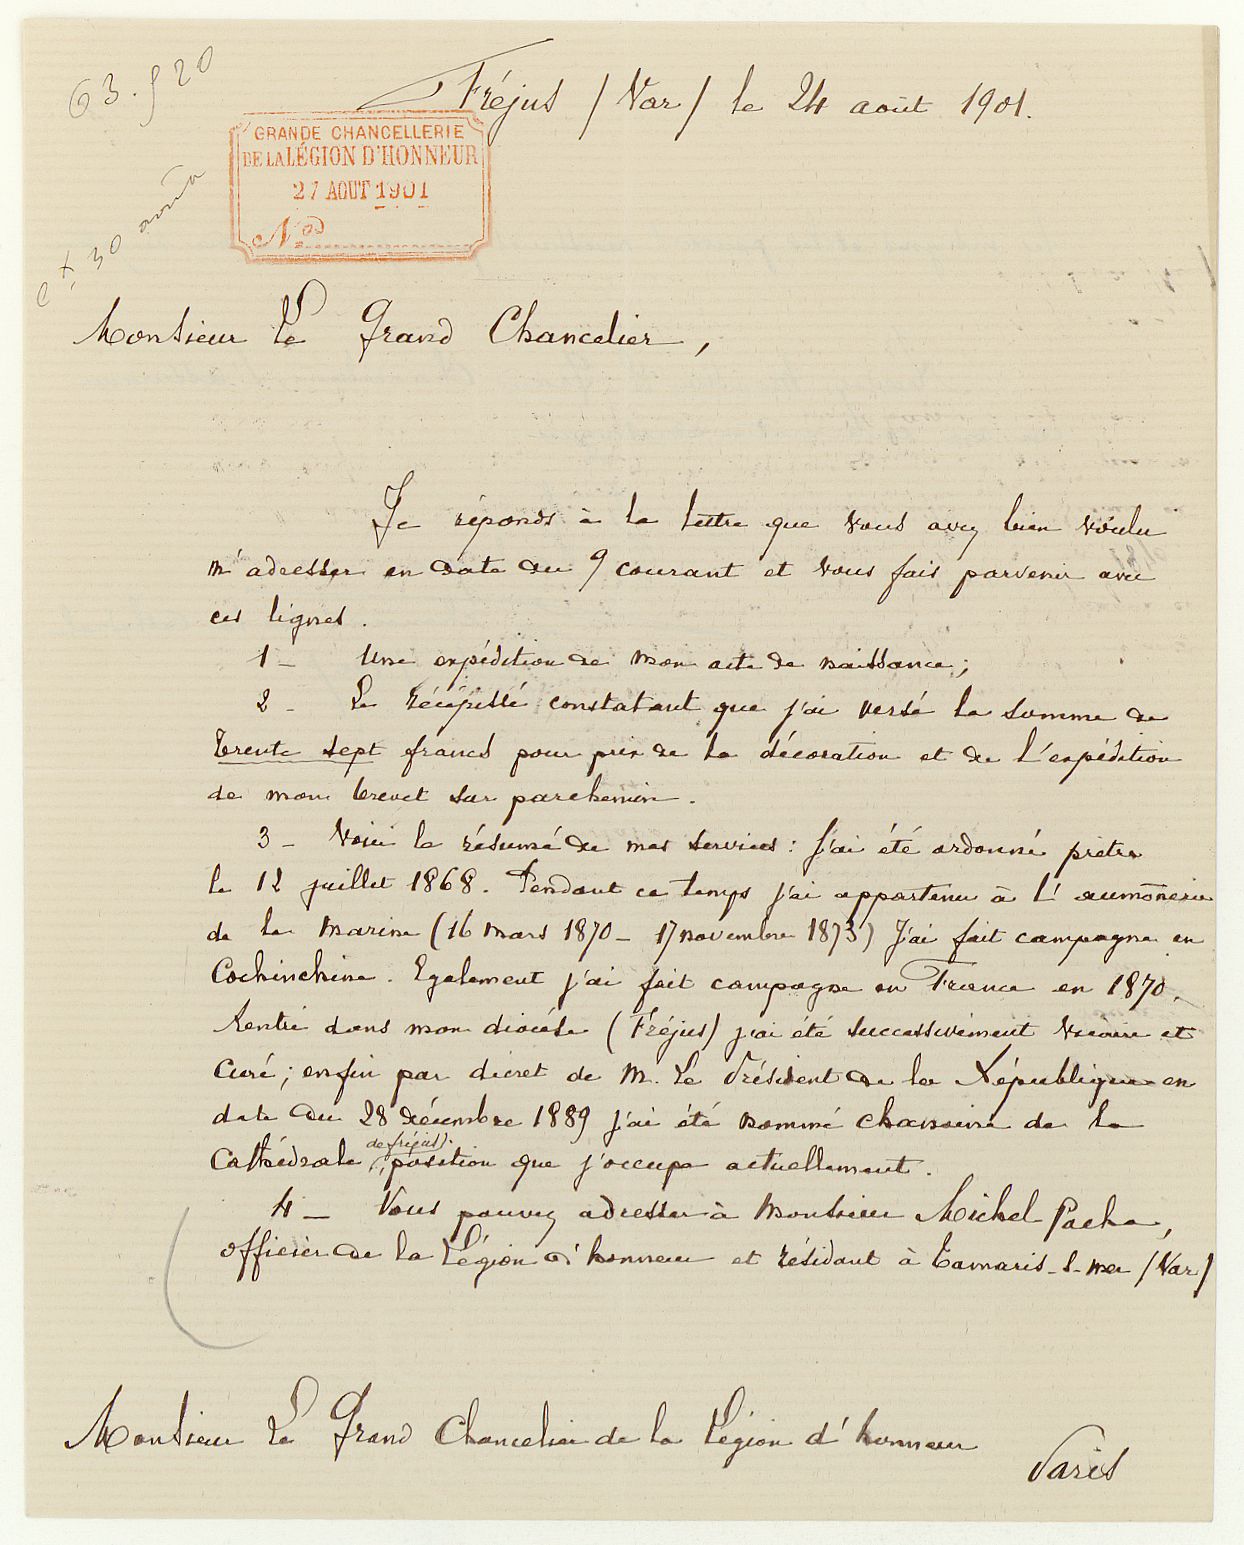 63.520
Fréjus / Var / le 24 août 1901.
GRANDE CHANCELLERIE
DE LA LÉGION D'HONNEUR
27 AOUT 1901
No
30 août
Monsieur Le Grand Chancelier,
Je réponds à la lettre que vous avez bien voulu
m'adresser en date du 9 courant et vous fais parvenir avec
ces lignes.
1 - Une expédition de mon acte de naissance;
2 - Le récépissé constatant que j'ai versé la somme de
trente sept francs pour prix de la décoration et de l'expédition
de mon brevet sur parchemin.
3 - Voici le résumé de mes services : J'ai été ordonné prêtre
le 12 juillet 1868. Pendant ce temps j'ai appartenu à l'aumônerie
de la Marine (16 Mars 1870 - 17 novembre 1873) J'ai fait campagne en
Cochinchine. Egalement j'ai fait campagne en France en 1870.
Rentré dans mon diocèse (Fréjus) j'ai été successivement vicaire et
Curé; enfin par décret de M. Le Président de la République en
date du 28 Décembre 1889 j'ai été nommé chanoine de la
de fréjus).
Cathédrale (, position que j'occupe actuellement.
4 - Vous pouvez adresser à Monsieur Michel Pacha,
officier de la Légion d'honneur et résidant à Tamaris-s-mer / Var /
Monsieur Le Grand Chancelier de la Légion d'honneur
Paris